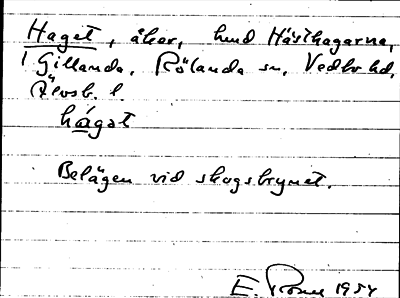 Haget, åker, hmd Hästhagarna,
1 Gillanda, Rölanda sn, Vedbo hd,
Älvsb. l.
hágat
Belägen vid skogsbrynet.
E. 1954